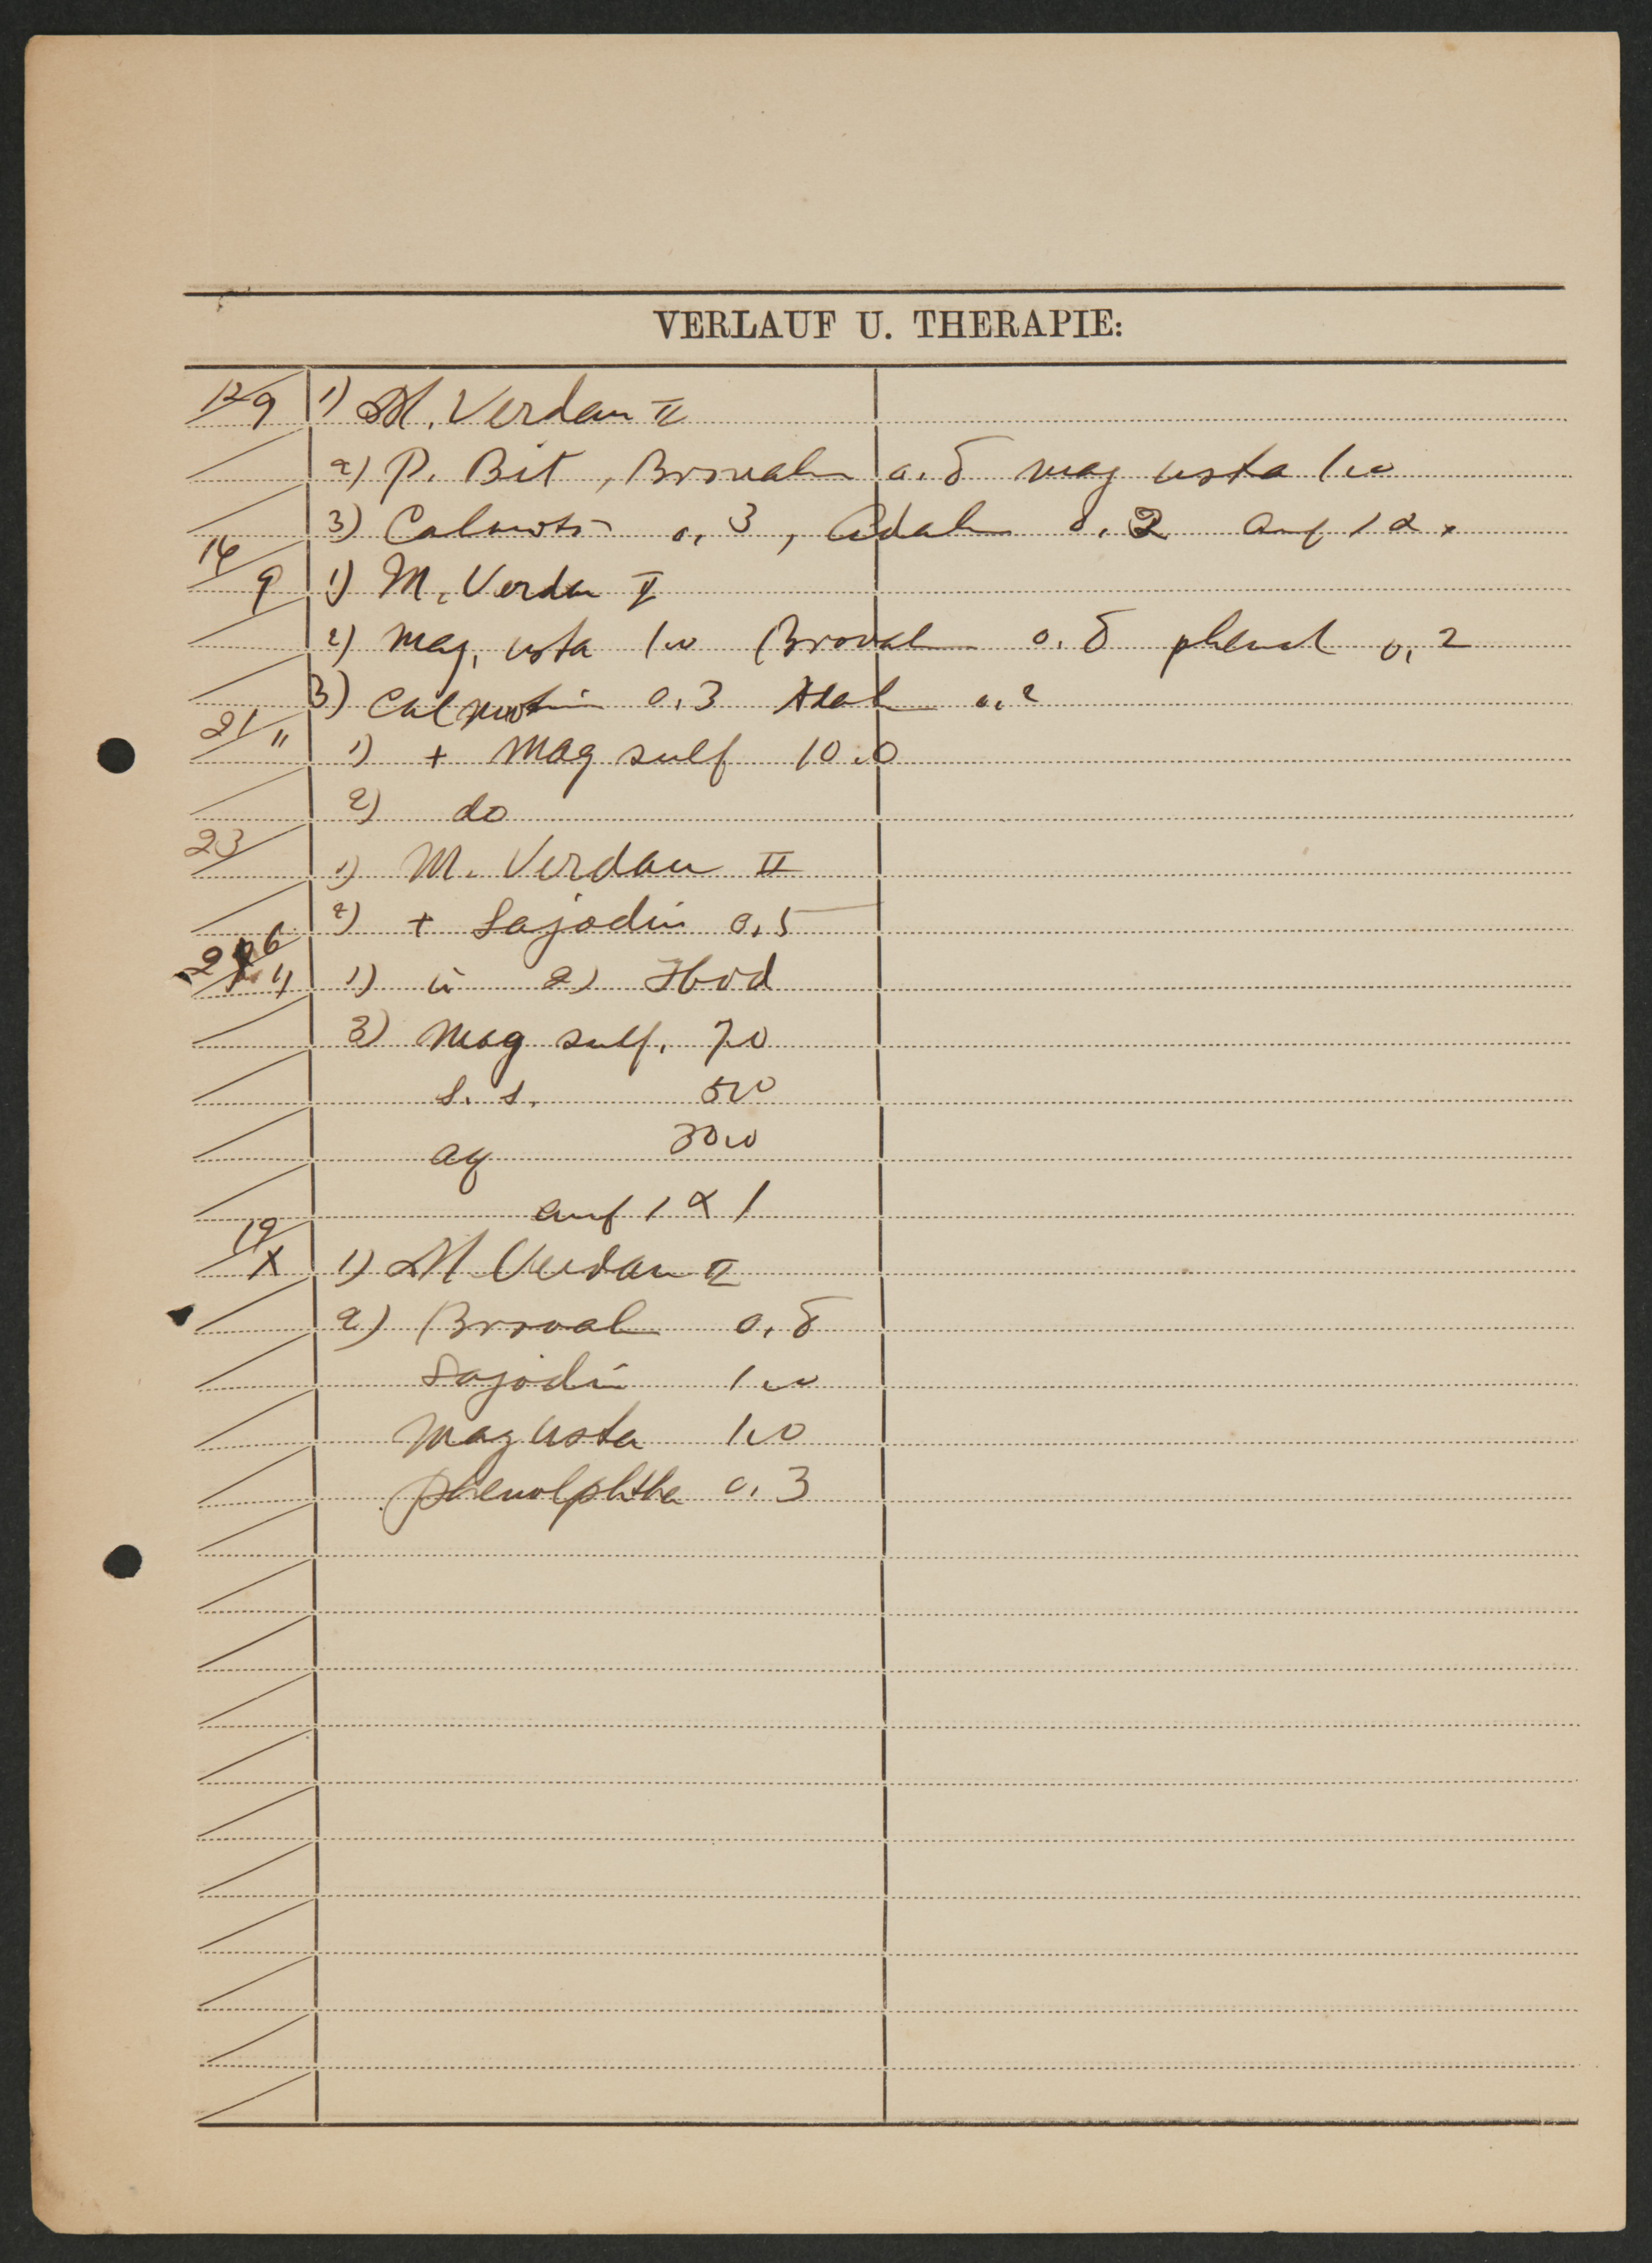 VERLAUF U. THERAPIE:
12/9 1) M. Verdau II
2) P. Bit, Brovalin 0.5 mag usta 1.0
3) Calmotin 0.3, Adalin 0.2 auf 1 d.
16/9 1) M. Verdau II
2) Mag. usta 1.0 Brovalin 0.5 phenol 0.2
3) Calmotin 0.3 Adalin 0.2
21/" 1) + Mag sulf 10.0
2) do
23/ 1) M. Verdau II
2) + Sajodin 0.5
1) u 2)
3) Mag sulf. 7.0
S. S. 5.0
aq 30.0
auf 1 x 1
19/X 1) M Verdau II
2) Broval 0.5
Sajodin 1.0
Mag usta 1.0
Phenolphtha 0.3